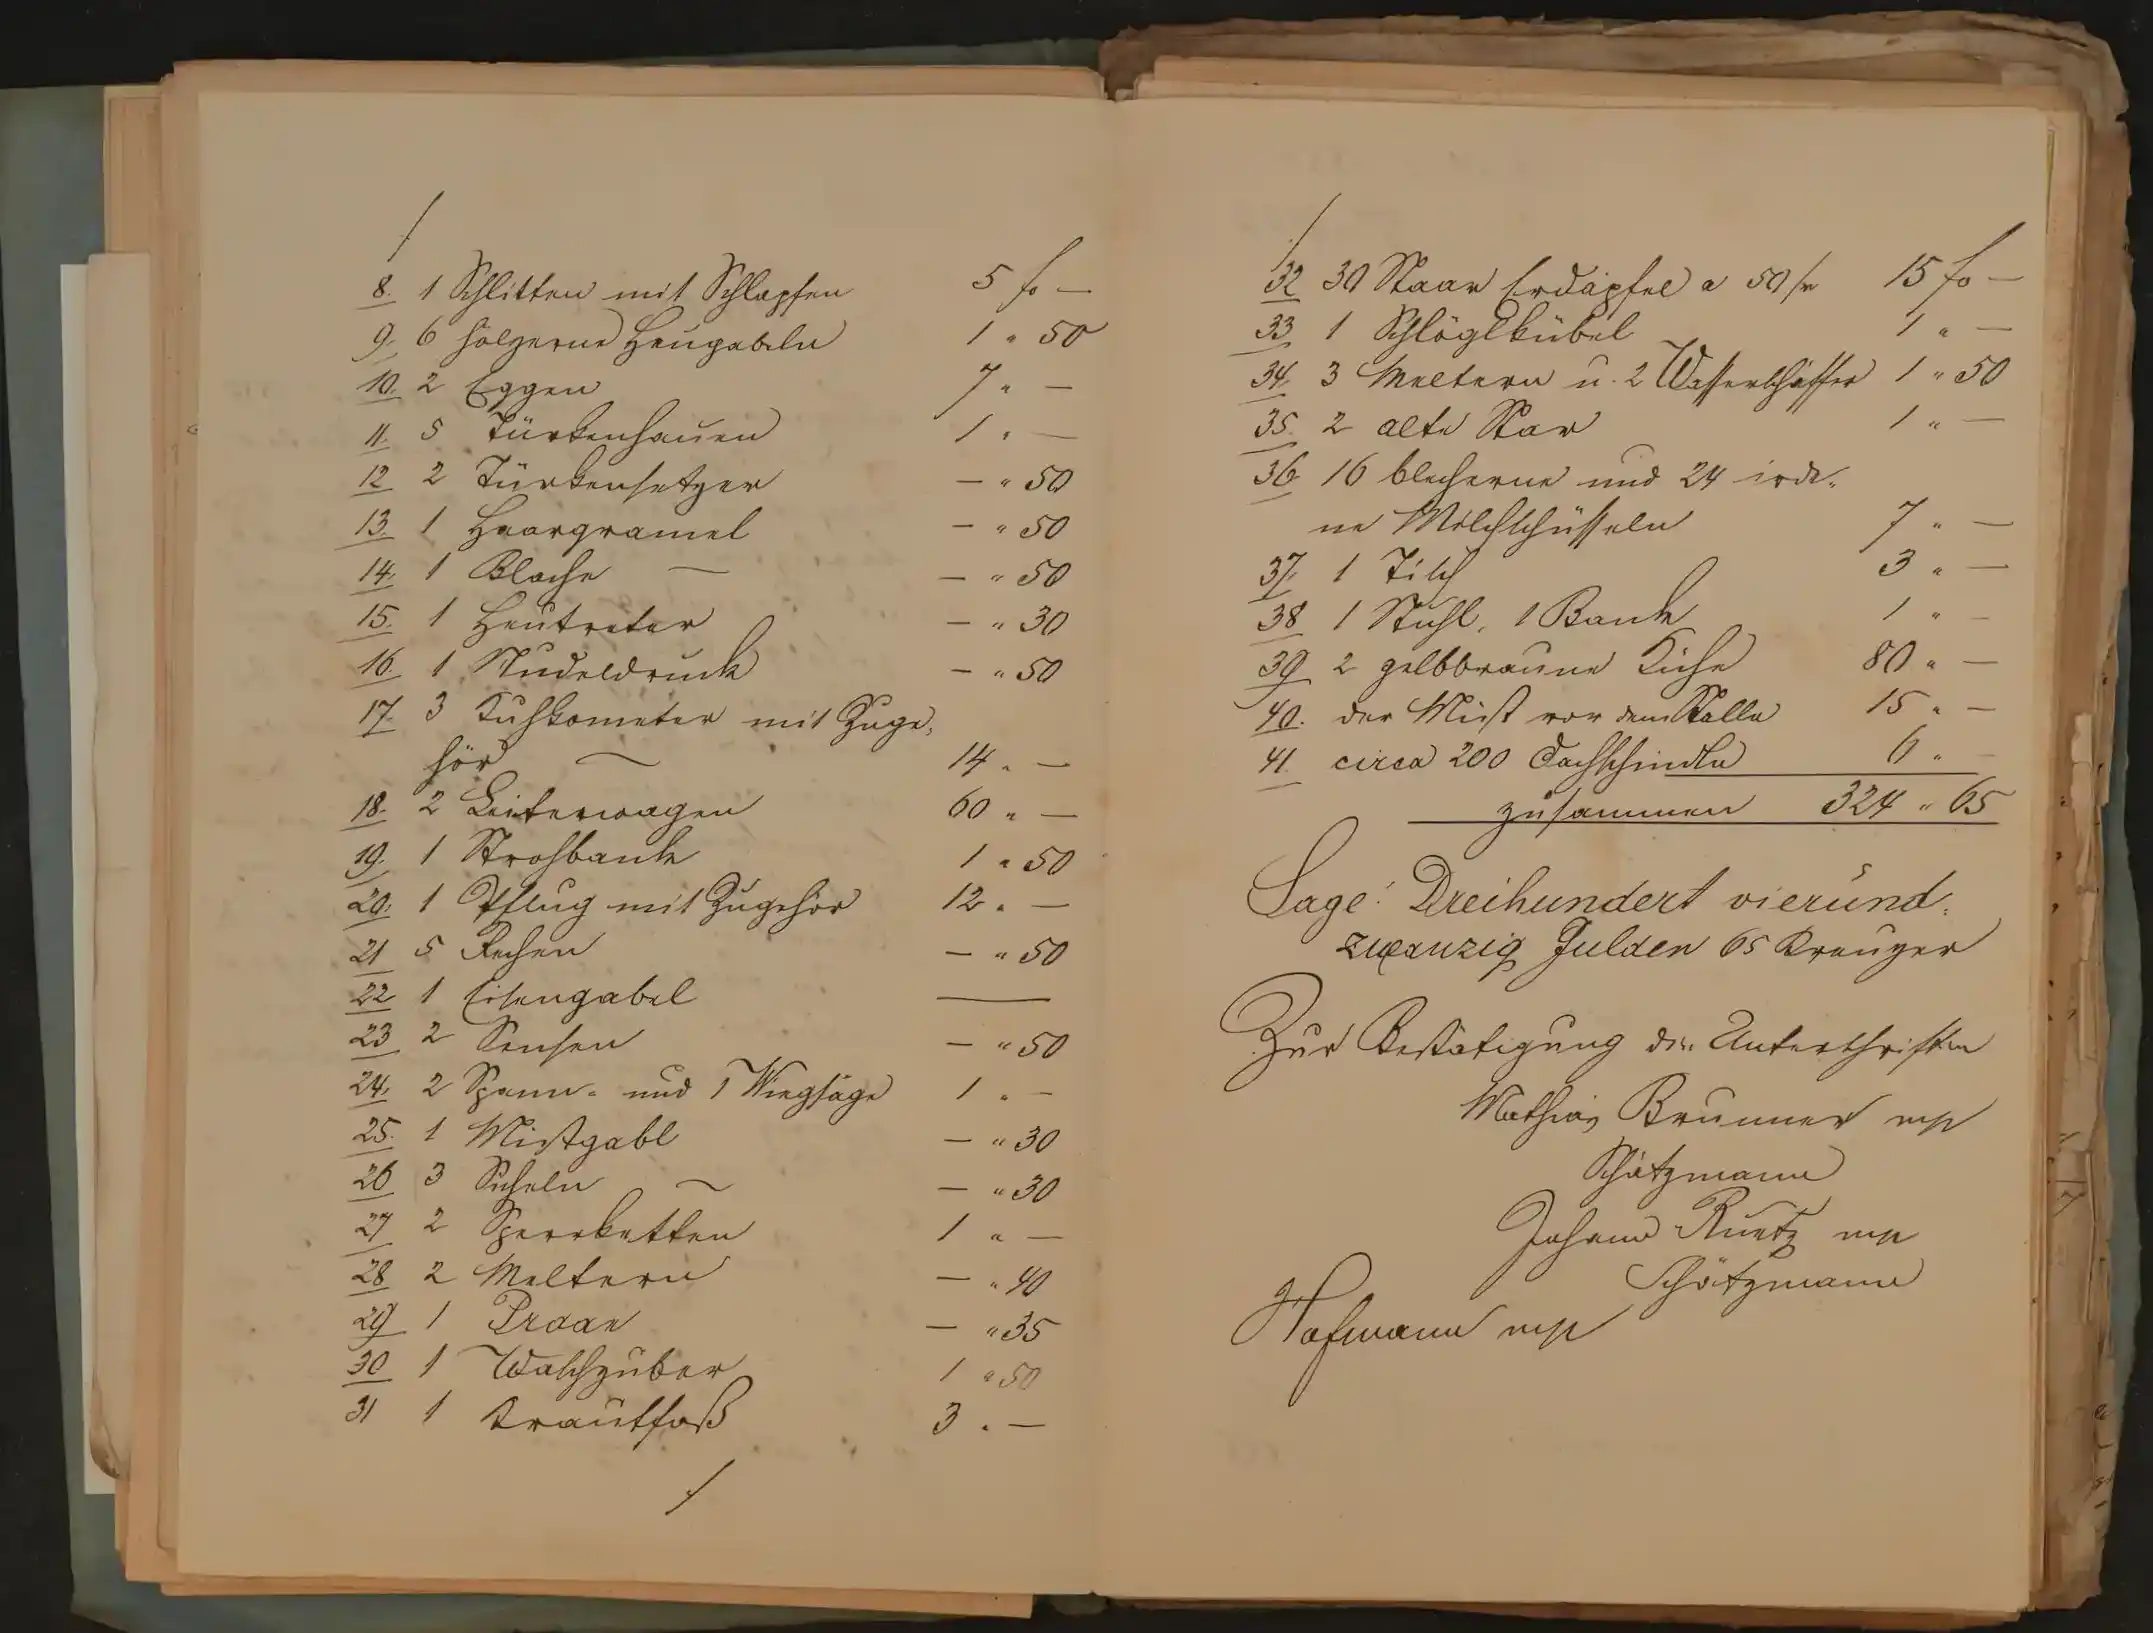 8. 1 Schlitten mit Schlapfen 5 f –
9. 6 hölzerne Heugabeln 1 " 50
10. 2 Eggen 7 " –
11. 5 Türkenhauen 1 " –
12 2 Türkensetzer – " 50
13. 1 Haargramel – " 50
14. 1 Blache – " 50
15. 1 Heutreter – " 30
16. 1 Nudeldruck – " 50
17. 3 Kuhkometer mit Zuge-
hör 14 " –
18. 2 Leiterwagen 60 " –
19. 1 Strohbank 1 " 50
20. 1 Pflug mit Zugehör 12 " –
21 5 Rechen – " 50
22 1 Eisengabel —
23 2 Sensen – " 50
24. 2 Spann- und 1 Wiegsäge 1 " –
25. 1 Mistgabl – " 30
26 3 Sicheln – " 30
27 2 Sperrketten 1 " –
28 2 Meltern – " 40
29 1 – " 35
30 1 Waschzuber 1 " 50
31 1 Krautfaß 3 " –
32 30 Staar Erdäpfel a 50 kr 15 f –
33 1 Schlöglkübel 1 " –
34. 3 Meltern u. 2 Wasserschäffer 1 " 50
35. 2 alte Star 1 " –
36. 16 blecherne und 24 irde-
ne Milchschüsseln 7 " –
37. 1 Tisch 3 " –
38 1 Stuhl, 1 Bank 1 " –
39 2 gelbbraune Kühe 80 " –
40. der Mist vor dem Stalle 15 " –
41. circa 200 Dachschindln 6 " –
zusammen 324 " 65
Sage: Dreihundert vierund-
zwanzig Gulden 65 Kreuzer
Zur Bestätigung der Unterschriften
Mathias Brunner mp
Schätzmann
Johann Ruetz mp
Schätzmann
Hofmann mp